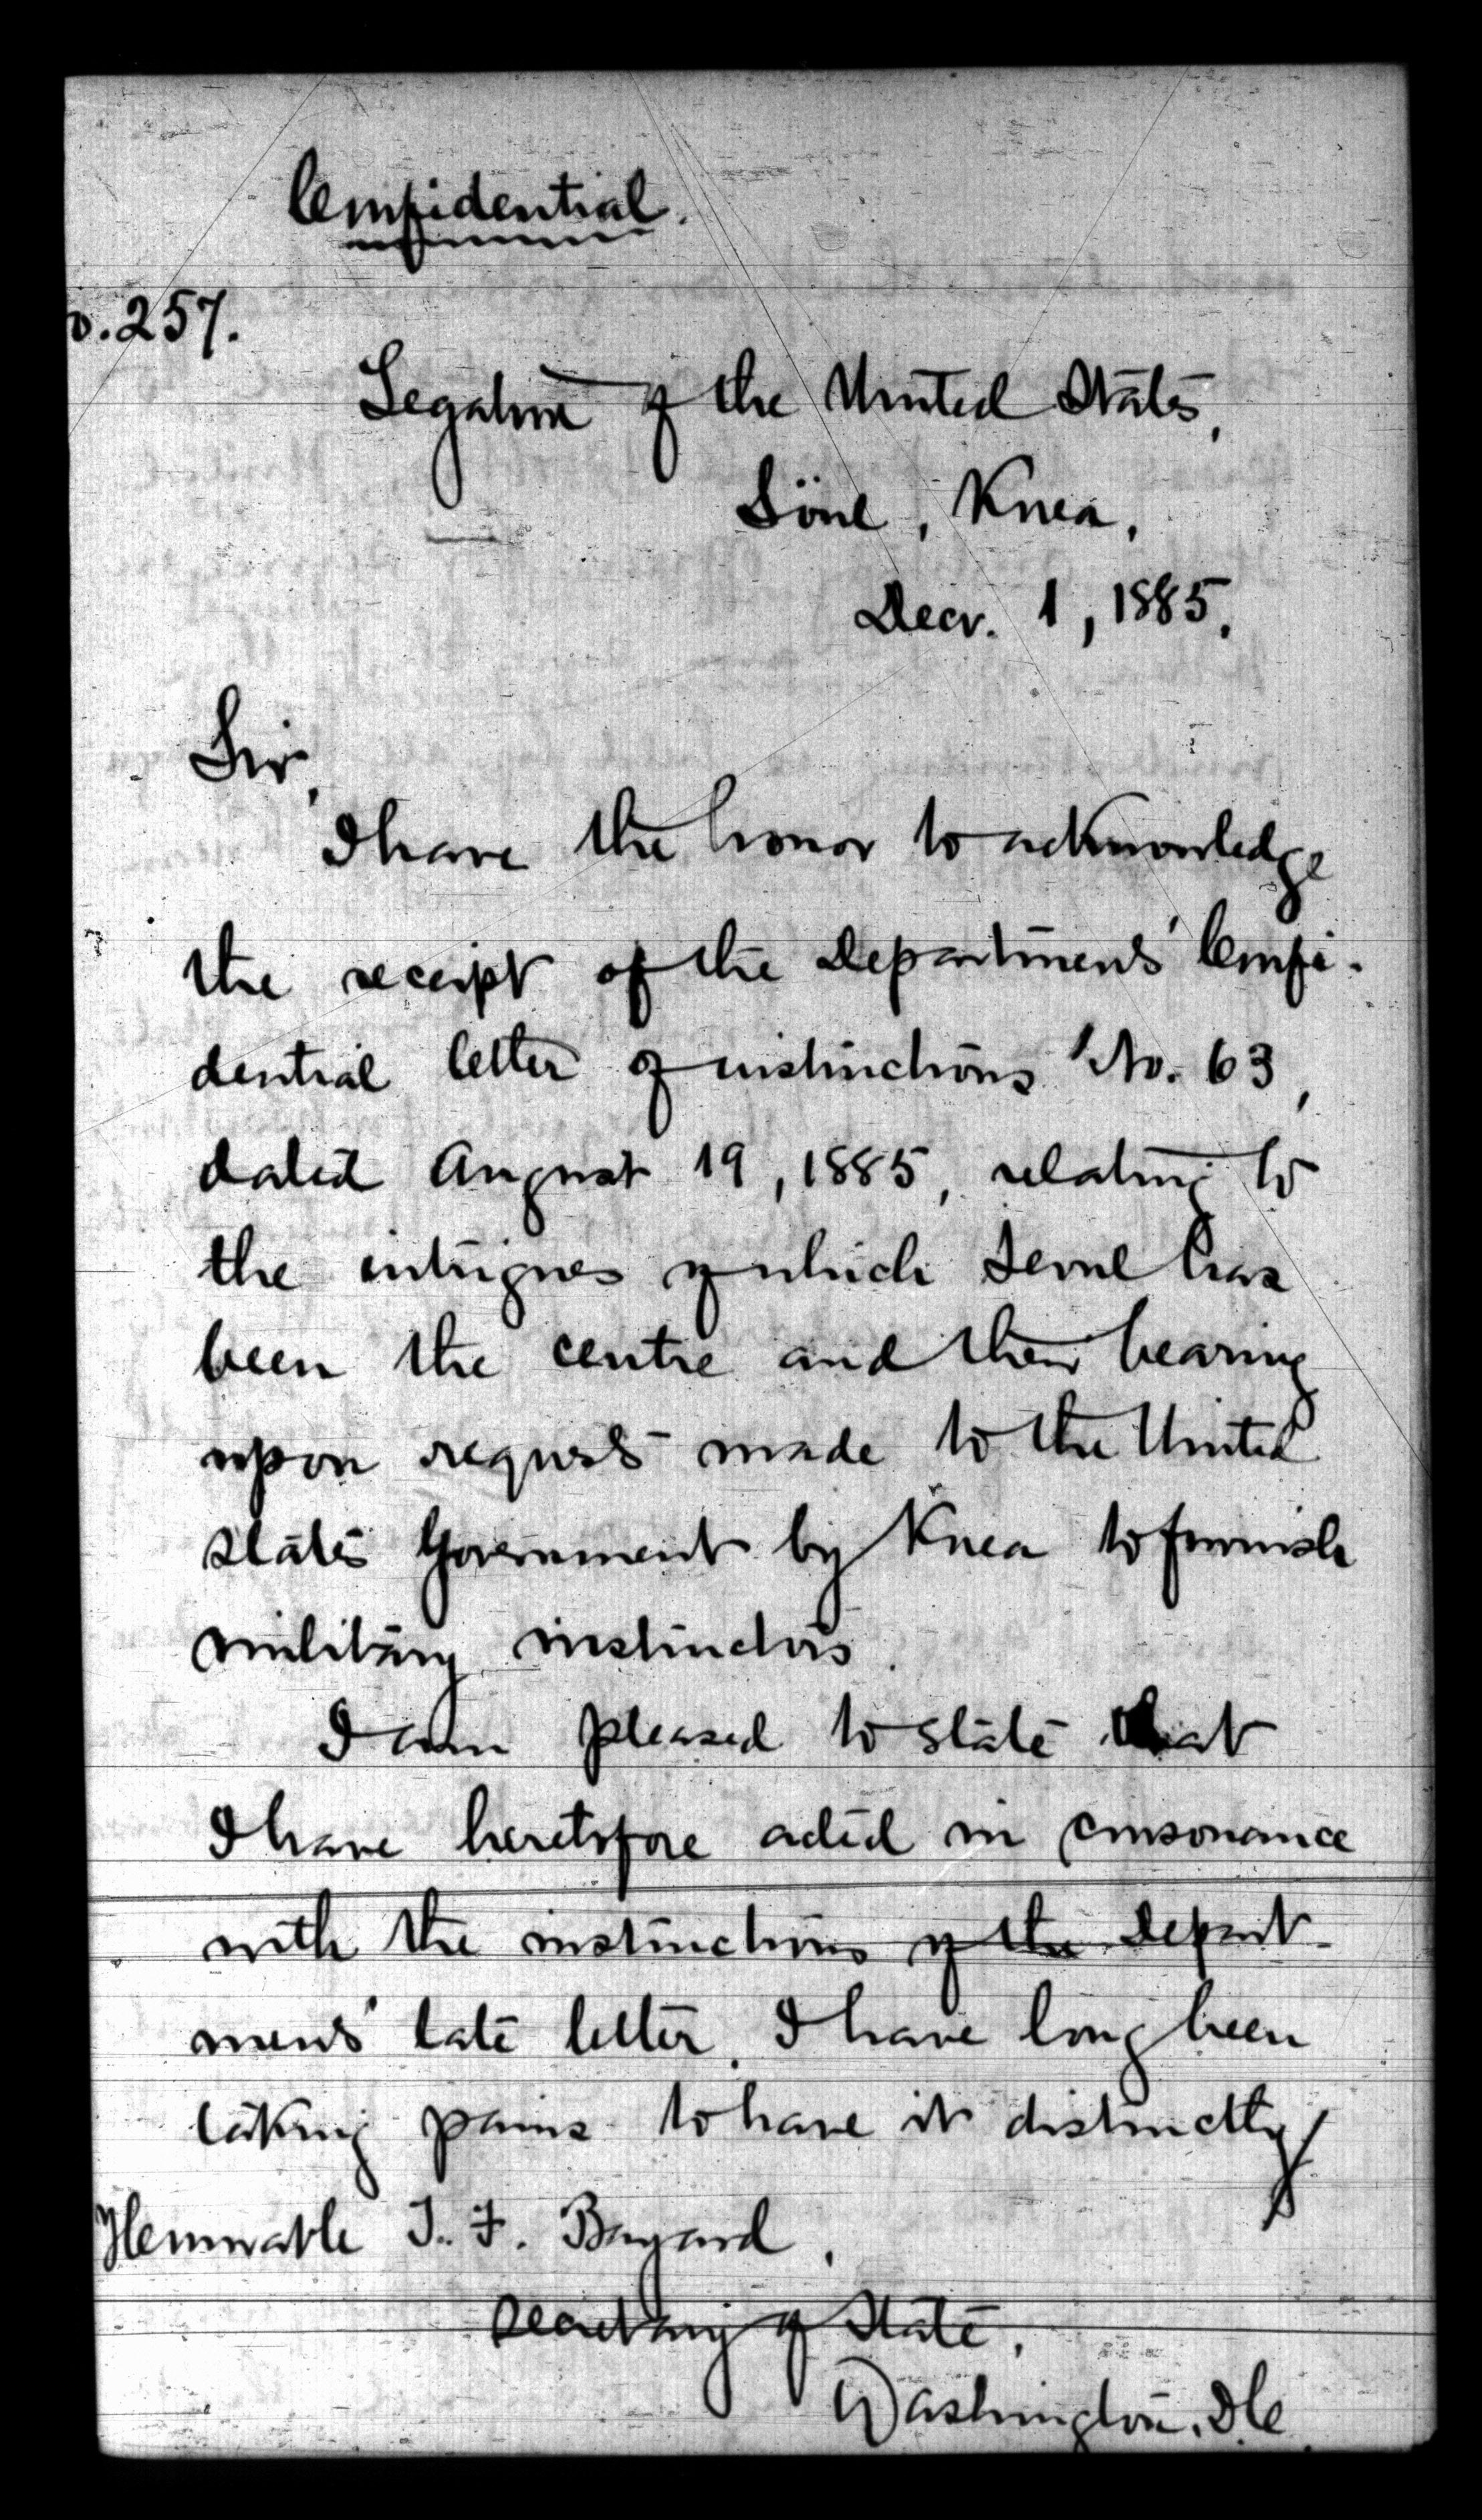 Confidential.
o. 257.
Legation of the United States,
Söul, Korea,
Decr. 1, 1885.
Sir,
I have the honor to acknowledge
the receipt of the Department's Confi-
dential letter of instructions No. 63,
dated August 19, 1885, relating to
the intrigues of which Seoul has
been the centre and their bearing
upon requests made to the United
States Government by Korea to furnish
military instructors.
I am pleased to state that
I have heretofore acted in consonance
with the instructions of the Depart-
ment's late letter. I have long been
taking pains to have it distinctly
Honorable T. F. Bayard,
Secretary of State,
Washington, D.C.